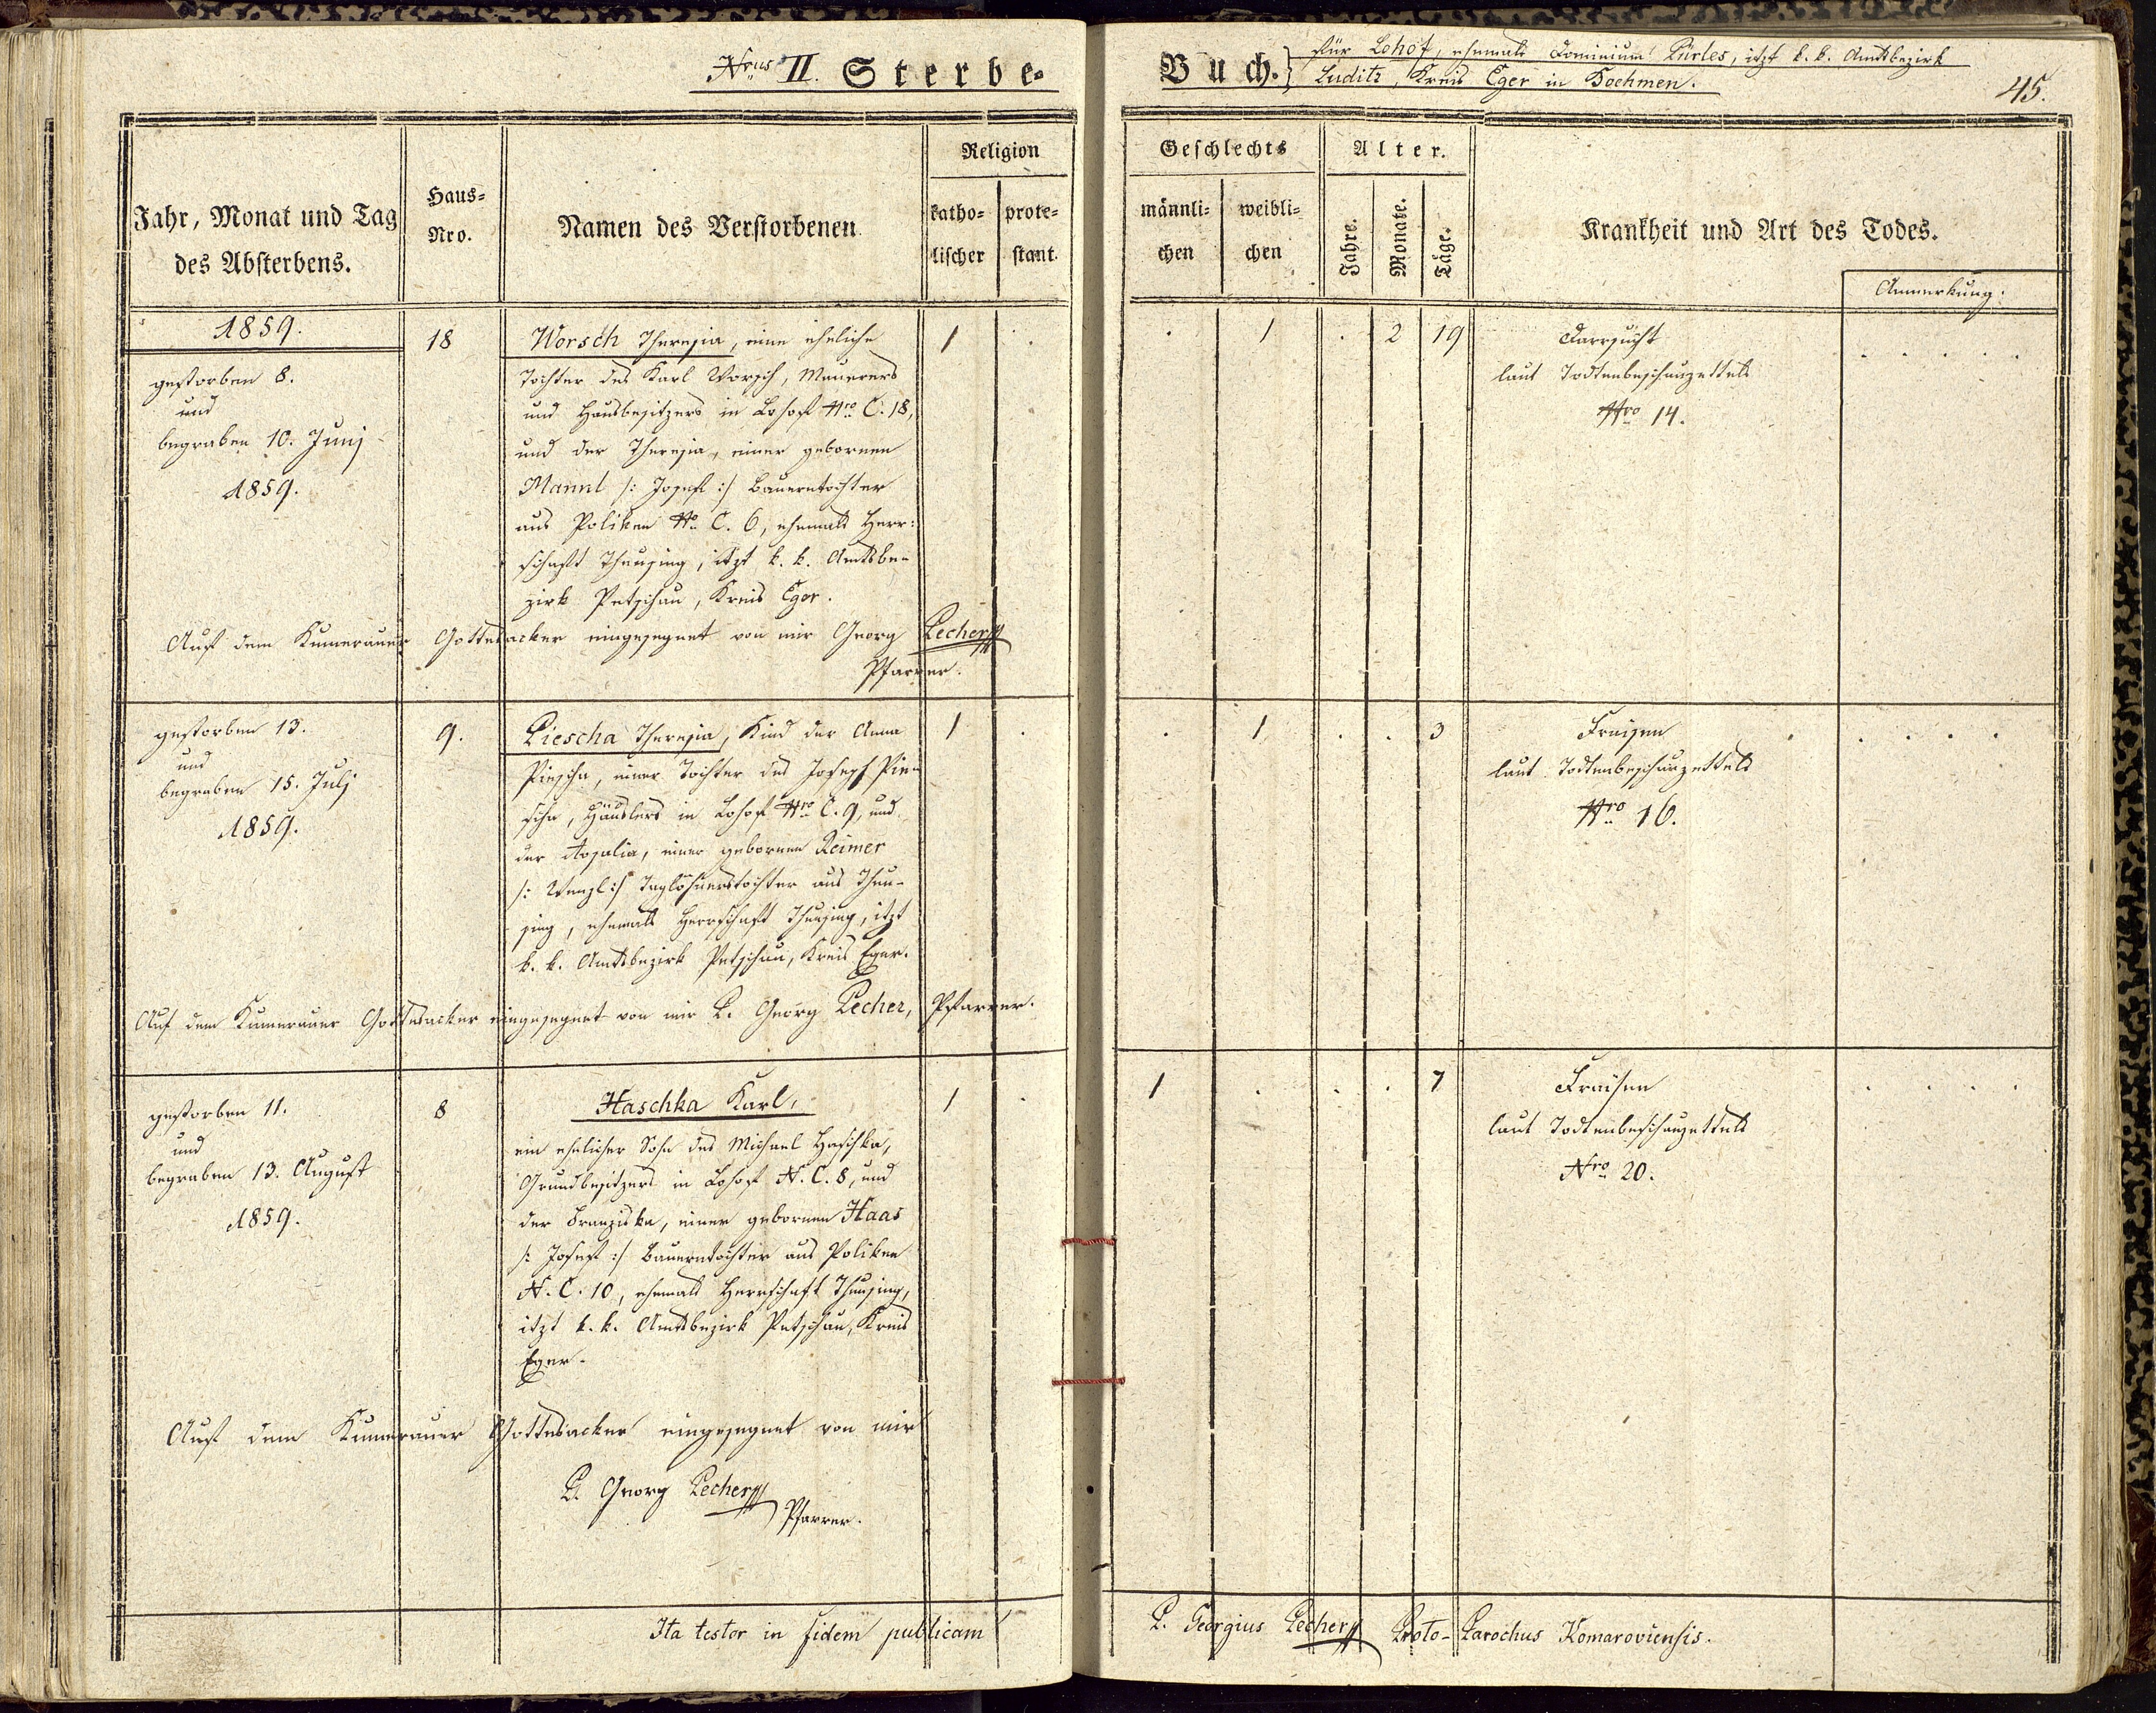 Nrus II. Sterbe-
Buch. für Lohof, ehemals Dominium Pürles, itzt k. k. Amtsbezirk
Luditz, Kreis Eger in Boehmen.
45.
Jahr, Monat und Tag
des Absterbens.
Haus-
Nro.
Namen des Verstorbenen
Religion
katho-
lischer
prote-
stant.
Geschlechts
männli-
chen
weibli-
chen
Alter.
Jahre.
Monate.
Täge.
Krankheit und Art des Todes.
Anmerkung:
1859.
gestorben 8.
und
begraben 10. Junj
1859.
18
Worsch Theresia, eine eheliche
Tochter des Karl Worsch, Maurers
und Hausbesitzers in Lohof Nro C. 18,
und der Theresia, einer gebornen
Mannl /: Josef :/ Bauerntochter
aus Poliken No C. 6, ehemals Herr-
schaft Theusing, itzt k. k. Amtsbe-
zirk Petschau, Kreis Eger.
1 . . 1 . 2 19
Darrsucht
laut Todtenbeschauzettels
Nro 14.
Auf dem Kumerauer Gottesacker eingesegnet von mir Georg Pecher
Pfarrer.
gestorben 13.
und
begraben 15. Julj
1859.
9.
Piescha Theresia, Kind der Anna
Piescha, einer Tochter des Joseph Pie-
scha, Häuslers in Lohof Nro C. 9, und
der Rosalia, einer gebornen Reimer
/: Wenzl :/ Taglöhnerstochter aus Theu-
sing, ehemals Herrschaft Theusing, itzt
k. k. Amtsbezirk Petschau, Kreis Eger.
1 . . 1 . . 3
Fraisen
laut Todtenbeschauzettels
Nro 16.
Auf dem Kumerauer Gottesacker eingesegnet von mir P. Georg Pecher, Pfarrer.
gestorben 11.
und
begraben 13. August
1859.
8
Haschka Karl,
ein ehelicher Sohn des Michael Haschka,
Grundbesitzers in Lohof N. C. 8, und
der Franziska, einer gebornen Haas
/: Josef :/ Bauerntochter aus Poliken
N. C. 10, ehemals Herrschaft Theusing,
itzt k. k. Amtsbezirk Petschau, Kreis
Eger.
1 . 1 . . . 7
Fraisen
laut Todtenbeschauzettels
Nro 20.
Auf dem Kumerauer Gottesacker eingesegnet von mir
P. Georg Pecher
Pfarrer.
Ita testor in fidem publicam P. Georgius Pecher Proto-Parochus Komaroviensis.